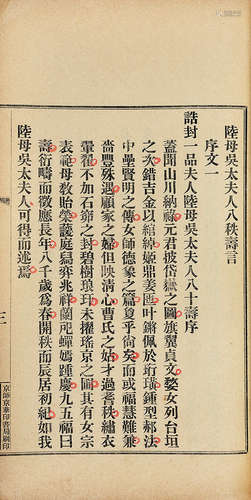 陸母吳太夫人八秩壽言
序文一
誥封一品夫人陸母吳太夫人八十壽序
蓋聞山川納祿元君披岱嶽之圖旗翼貞文婺女列台垣
之次錯吉金以綰綽姬鼎姜匜叶鏘佩於珩璜鍾型郝法
中壘賢明之傳女師德象之篇夐乎尙矣而或福慧難兼
嗇豐殊遇顧家之婦但映清心曹氏之姑才過耆秩繡衣
翬翟不加石窌之封碧樹琅玕未擢瑤京之圃其有女宗
表範母敎貽榮庭弈兆祥蘭蟬嫣踵慶九五福曰
壽衍疇而徵應長年八千歲爲春開秩而辰居初紀如我
陸母吳太夫人可得而述焉
京師京華印書局刷印